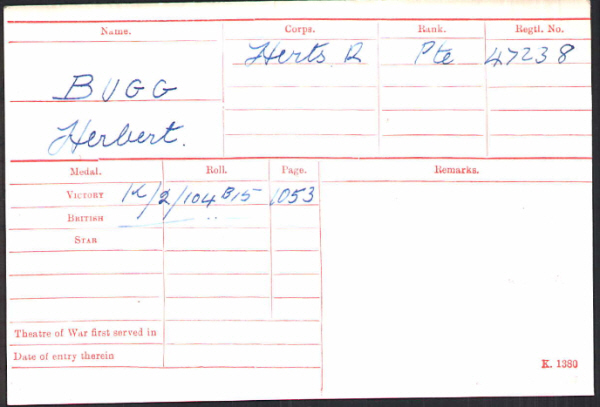 Name. Corps. Rank. Regtl. No.
Herts R Pte 47238
BUGG
Herbert.
Medal. Roll. Page. Remarks.
VICTORY K/2/104 B15 1053
BRITISH
STAR
Theatre of War first served in
Date of entry therein
K. 1380